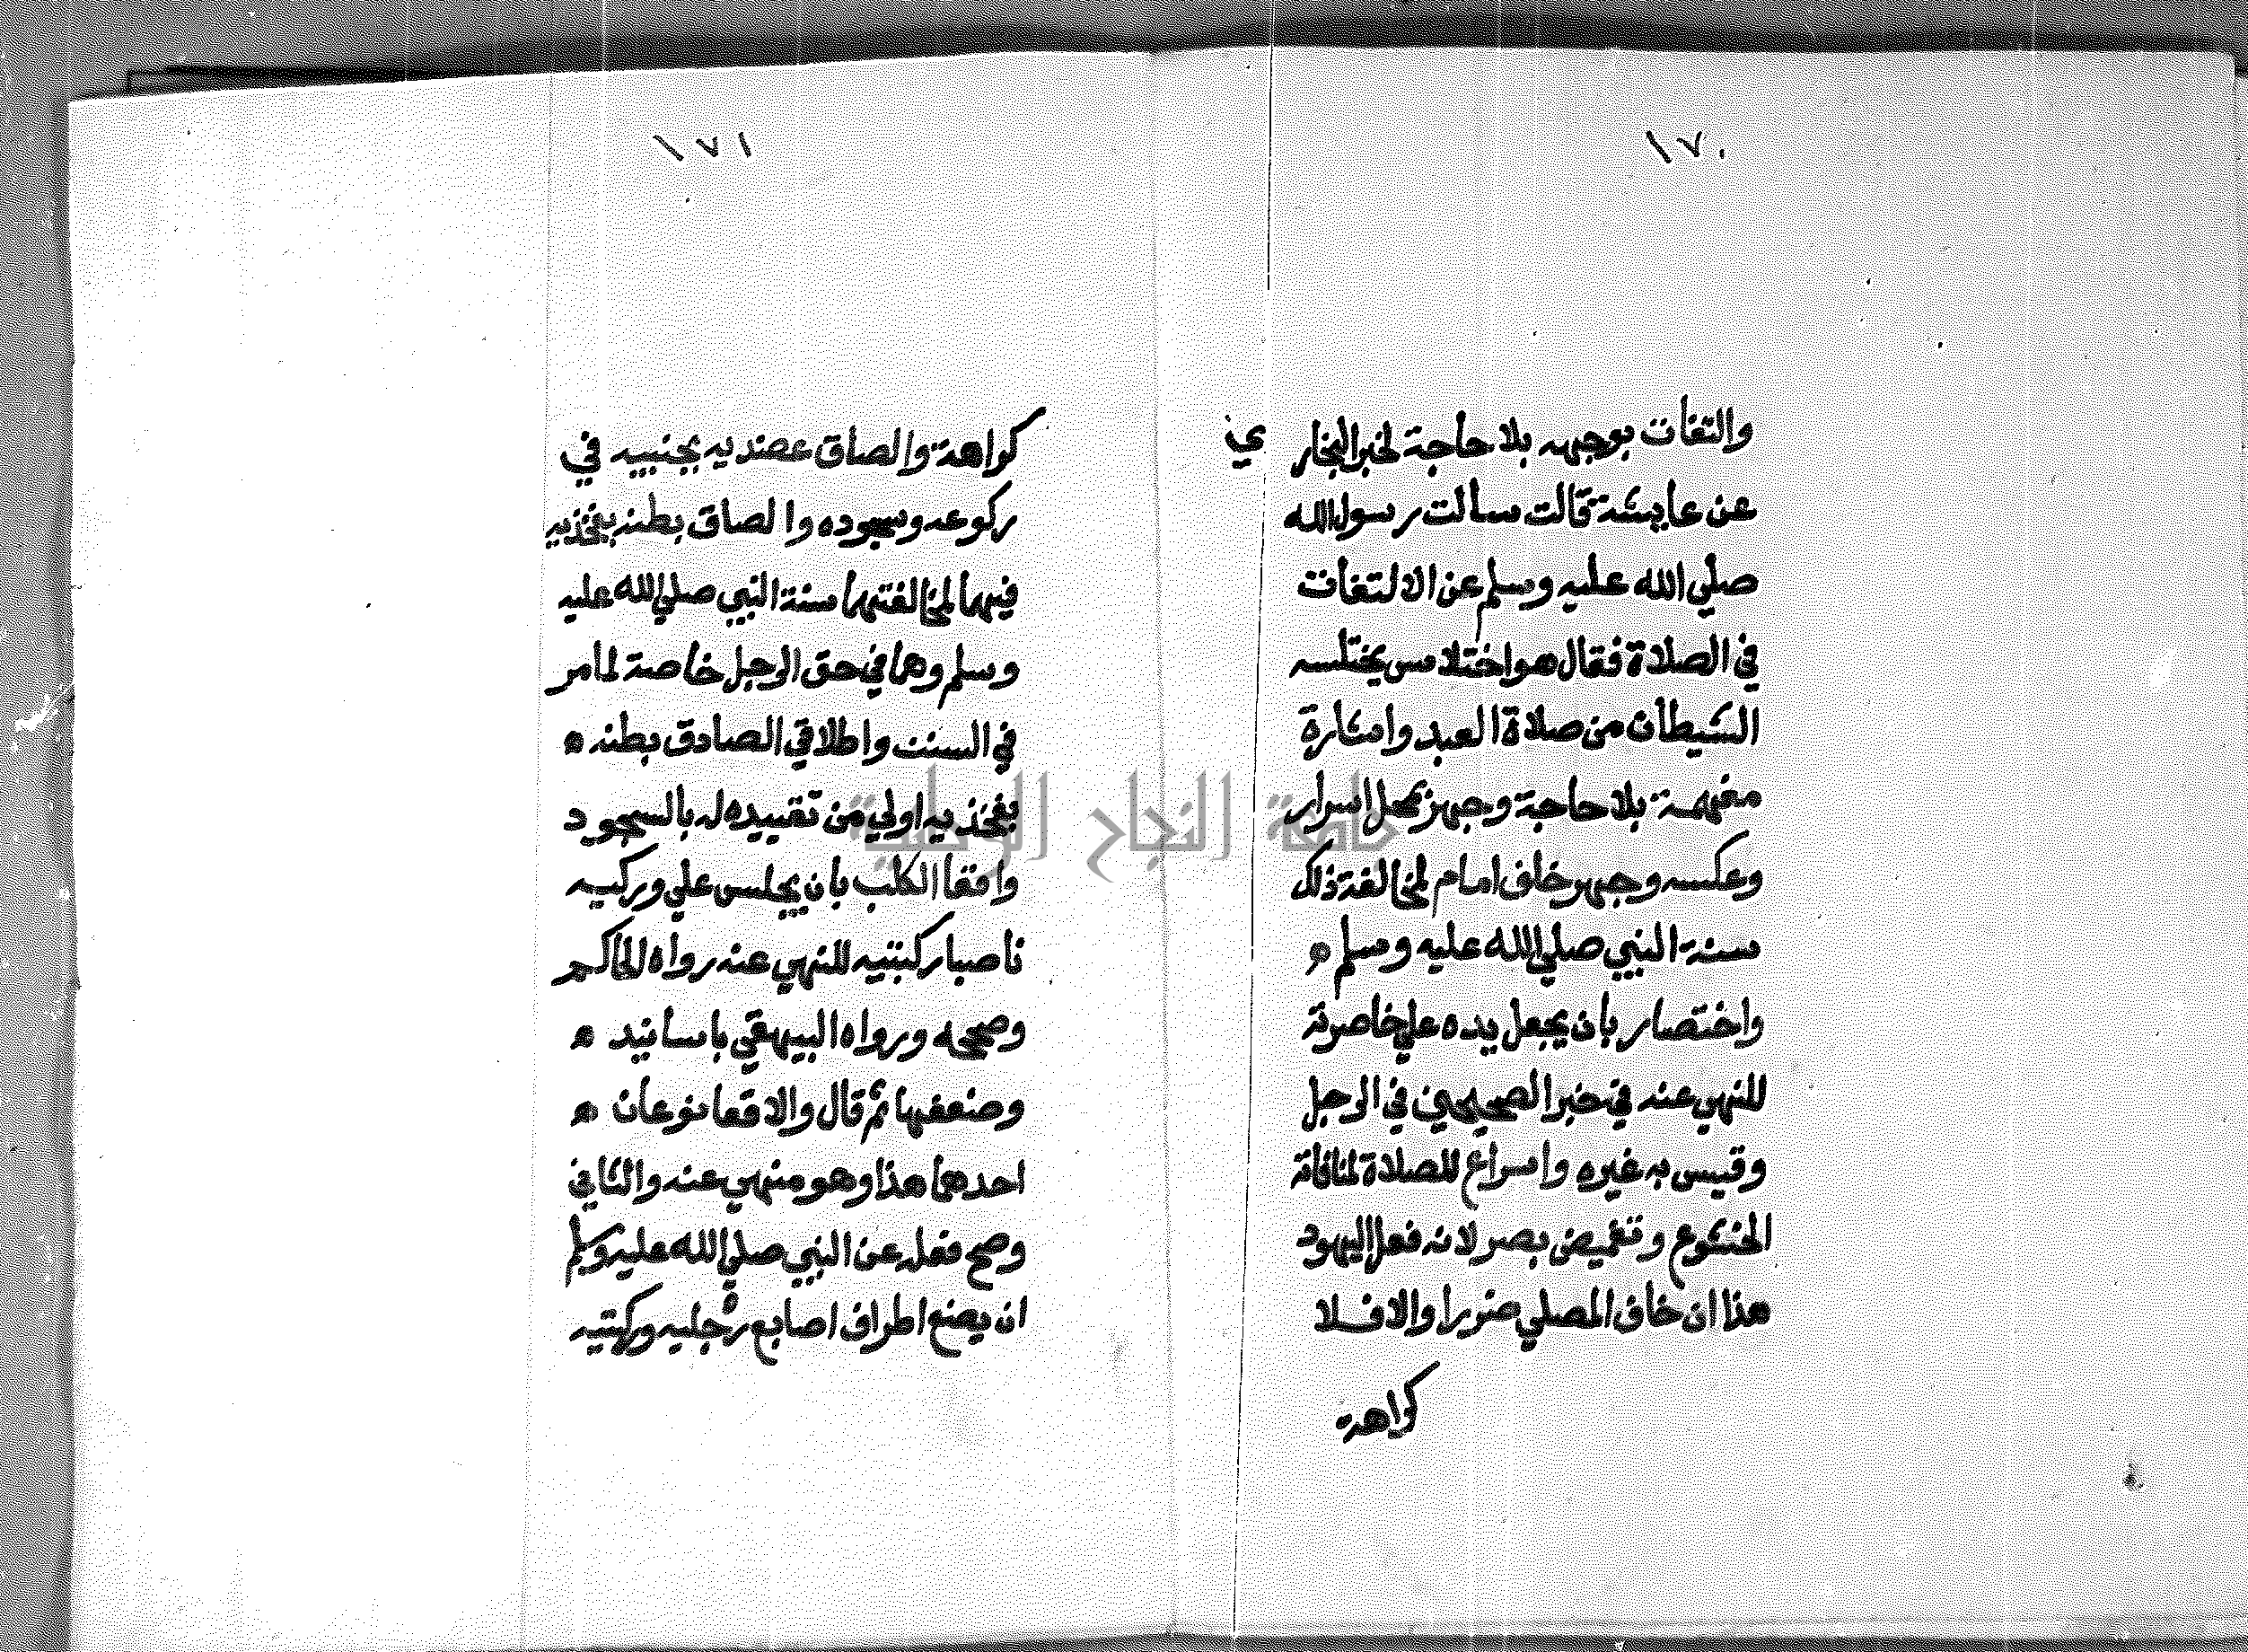 ١٧٠
والتفات بوجهه بلا حاجة لخبر البخاري
عن عايشة قالت سالت رسول الله
صلي الله عليه وسلم عن الالتفات
في الصلاة فقال هو اختلاس يختلسه
الشيطان من صلاة العبد واشارة
مفهمة بلا حاجة وجهر بمحل اسرار
وعكسه وجهر خلف امام لمخالفة ذلك
سنة النبي صلي الله عليه وسلم ه
واختصار بان يجعل يده علي خاصرته
للنهي عنه في خبر الصحيحين في الرجل
وقيس به غيره واسراع للصلاة لمنافاة
الخشوع وتغميض بصر لانه فعل اليهود
هذا ان خاف المصلي ضررا والا فلا
كراهة
١٧١
كراهة والصاق عضديه بجنبيه في
ركوعه وسجوده والصاق بطنه بفخذيه
فيهما لمخالفتهما سنة النبي صلي الله عليه
وسلم وهما في حق الرجل خاصة لما مر
في السنن واطلاقي الصادق بطنه ه
بفخذيه اولي من تقييده له بالسجود
واقعا الكلب بان يجلس علي وركيه
ناصبا ركبتيه للنهي عنه رواه الحاكم
وصححه ورواه البيهقي باسانيد ه
وضعفها ثم قال والاقعا نوعان ه
احدهما هذا وهو منهي عنه والثاني
وصح فعله عن النبي صلي الله عليه وسلم
ان يضع اطراف اصابع رجليه وركبتيه
جامعة النجاح الوطنية